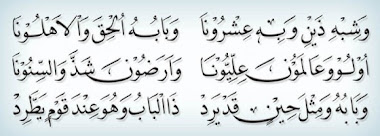 وَشِبْهِ ذَيْنِ وَبِهِ عِشْرُونَا وَبَابُهُ أُلْحِقَ وَالأَهْلُونَا
أُولُو وَعَالَمُونَ عِلِّيُّونَا وَأَرَضُونَ شَذَّ وَالسِّنُونَا
وَبَابُهُ وَمِثْلَ حِينٍ قَدْ يَرِدْ ذَا الْبَابُ وَهُوَ عِنْدَ قَوْمٍ يَطَّرِدْ